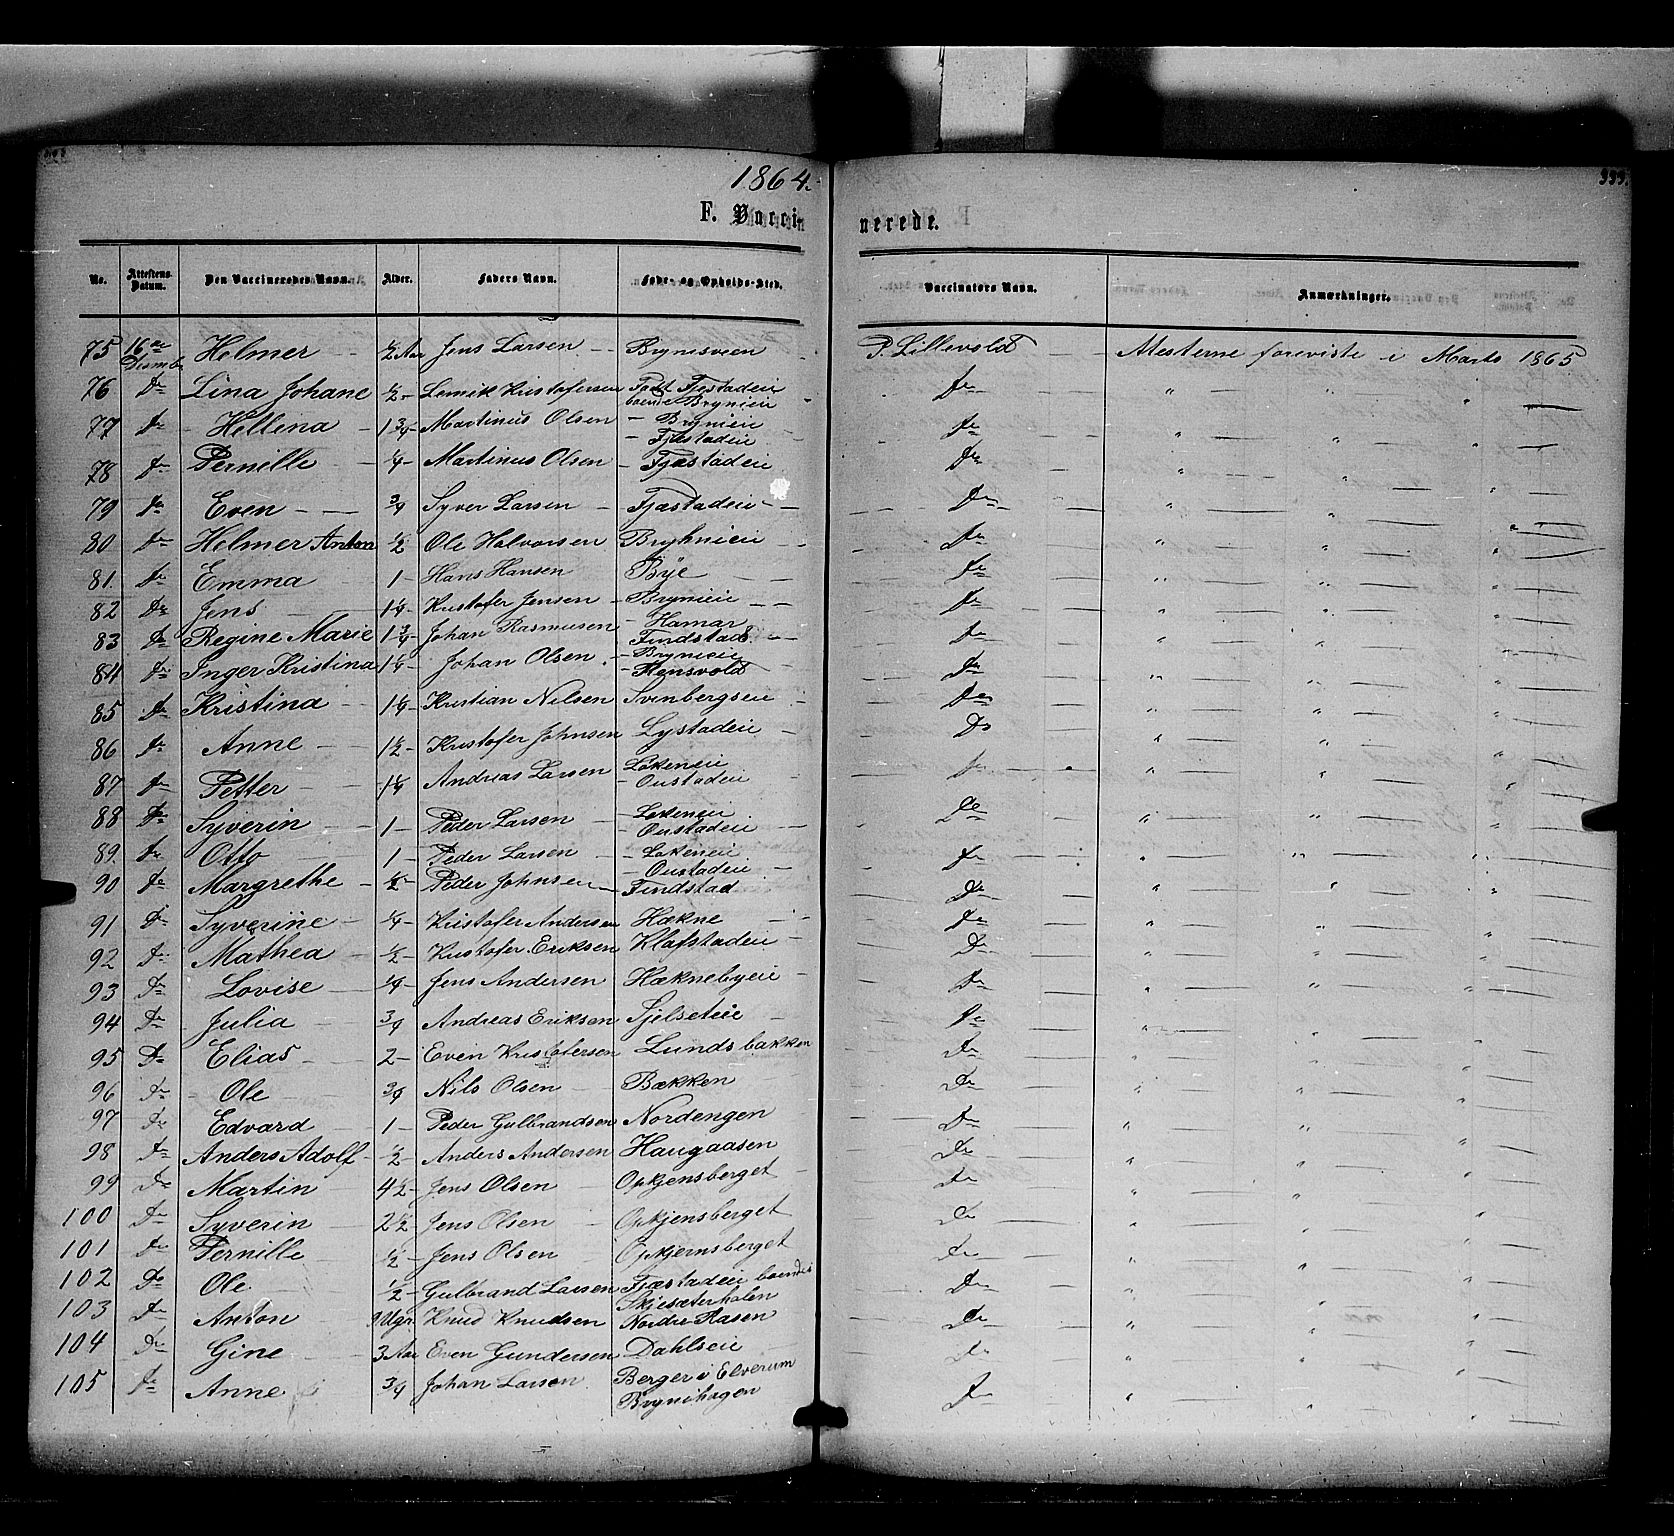 1864.
333.
F. Vaccinerede.
No. Attestens Datum. Den Vaccineredes Navn. Alder. Faders Navn. Føde- og Opholds-Sted. Vaccinators Navn. Anmærkninger.
75 16de Decmbr Helmer ½ Aar Jens Larsen Brynesveen P. Lillevold Atesterne foreviste i Marts 1865
76 Do Lina Johane ½ Kristofersen Født Fjestadeie Do " "
boende Brynieie
77 Do Hellena 1¾ Martinus Olsen Brynieie Do " " "
Fjæstadeie
78 Do Pernille ¼ Martinus Olsen Fjæstadeie Do " " "
79 Do Even ¾ Syver Larsen Fjæstadeie Do " " "
80 Do Helmer Anton ½ Ole Halvorsen Bryhnieie Do " " "
81. Do Emma 1 Hans Hansen Bye Do " " "
82 Do Jens 1¼ Kristofer Jensen Brynieie Do " " "
83 Do Regine Marie 1¾ Johan Rasmusen Hamar Do " " "
Findstad
84 Do Inger Kristina 1¼ Johan Olsen Brynieie Do " " "
Stensvold
85 Do Kristina 1¼ Kristian Nilsen Svenbergseie Do " " "
86 Do Anne 1½ Kristofer Johnsen Lystadeie Do " " "
87 Do Petter 1¼ Andreas Larsen Løkeneie Do " " "
Oustadeie
88 Do Syverin 1 Peder Larsen Løkeneie Do " " "
Oustadeie
89. Do Otto 1 Peder Larsen Løkeneie Do " " "
Oustadeie
90 Do Margrethe ½ Peder Johnsen Findstad Do " " "
91 Do Syverine ¼ Kristofer Andersen Hækne Do " " "
92 Do Mathea ½ Kristofer Eriksen Klafstadeie Do " " "
93 Do Lovise ¼ Jens Andersen Hæknebyeie Do " " "
94 Do Julia ¾ Andreas Eriksen Sjelseteie Do " " "
95 Do Elias 2 Even Kristofersen Lundsbakken Do " " "
96 Do Ole ¾ Nils Olsen Bækken Do " " "
97 Do Edvard 1 Peder Gulbrandsen Nordengen Do " " "
98 Do Anders Adolf ½ Anders Andersen Haugaasen Do " " "
99 Do Martin 4½ Jens Olsen Opkjensberget Do " "
100 Do Syverin 2½ Jens Olsen Opkjensberget Do " " "
101 Do Pernille ½ Jens Olsen Opkjernsberget Do " " "
102 Do Ole ½ Gulbrand Larsen Fjæstadeie boende Do " " "
Skjesæterhalen
103 Do Anton 9 Ugr Knud Knudsen Nordre Aasen Do " " "
104 Do Gine 3 Aar Even Gundersen Dahlseie Do " " "
105 Do Anne ¾ Johan Larsen Berger i Elverum Do " " "
Brynihagen